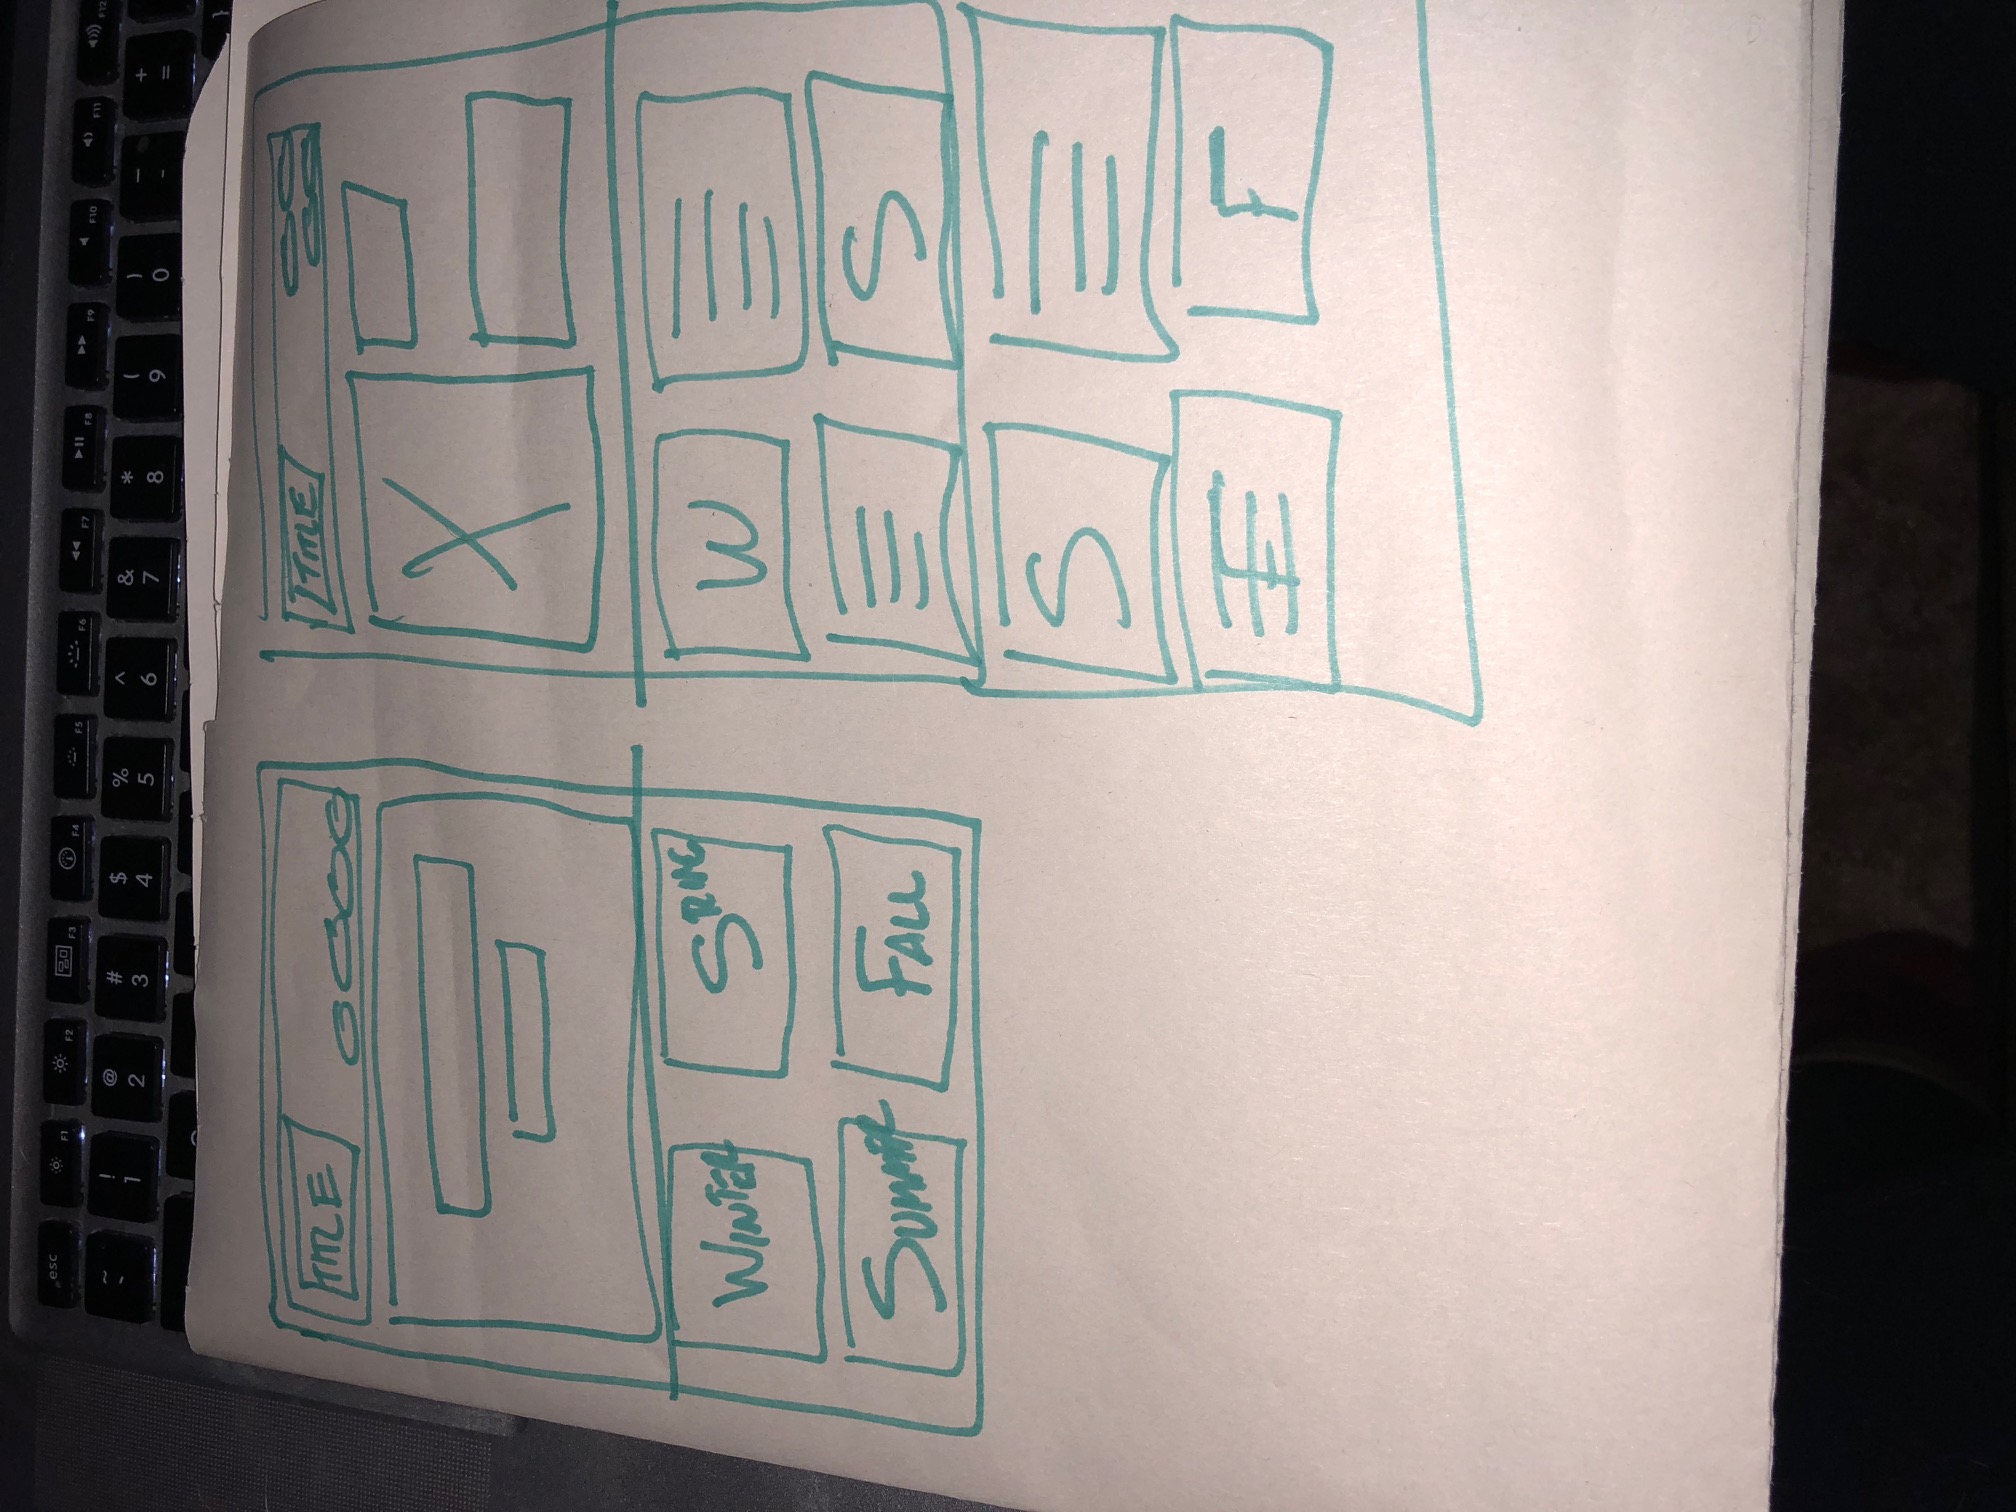 esc F1 F2 F3 F4 F5 F6 F7 F8 F9 F10 F11 F12
~ ! @ # $ % ^ & * ( ) – +
` 1 2 3 4 5 6 7 8 9 0 - =
}
TITLE
WINTER
SUMMER
FALL
TITLE
W
S
S
F
F